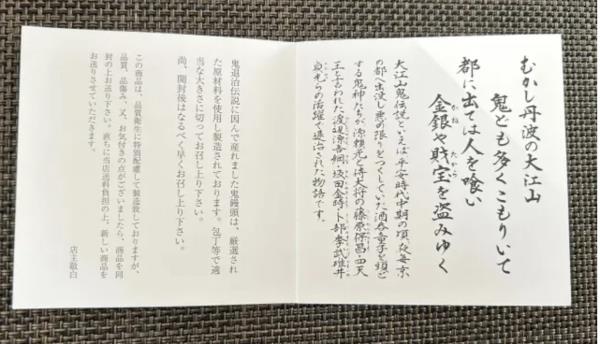 むかし丹波の大江山
鬼ども多くこもりいて
都に出ては人を喰い
金銀や財宝を盗みゆく
かね
たから
大江山鬼伝説といえば平安時代中期の頃、夜毎京
の都へ出没し悪の限りをつくしていた酒呑童子を頭と
する鬼神たちが源頼光と侍大将の藤原保昌・四天
王と言われた渡辺源吾綱・坂田金時・卜部季武・碓井
貞光らの活躍で退治された物語です。
鬼退治伝説に因んで産れました鬼饅頭は、厳選され
た原材料を使用し製造されております。包丁等で適
当な大きさに切ってお召し上り下さい。
尚、開封後はなるべく早くお召し上り下さい。
この商品は、品質衛生に特別配慮して製造致しておりますが、
品質、品傷み、又、お気付きの点がございましたら、商品を同
封の上お送り下さい。直ちに当店送料負担の上、新しい商品を
お送りさせていただきます。
店主敬白